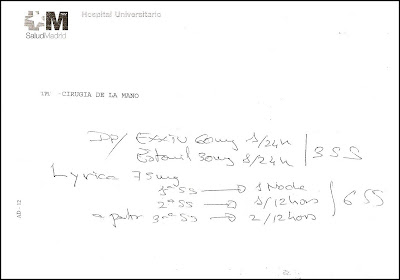 M
SaludMadrid
Hospital Universitario
CIRUGIA DE LA MANO
DP/ EXXIV 60mg 1/24h
30mg 1/24h
3 SS
Lyrica 75mg
1ª SS → 1 Noche
2ª SS → 1/12hors
6 SS
a partir 3ª SS → 2/12hors
AD-12